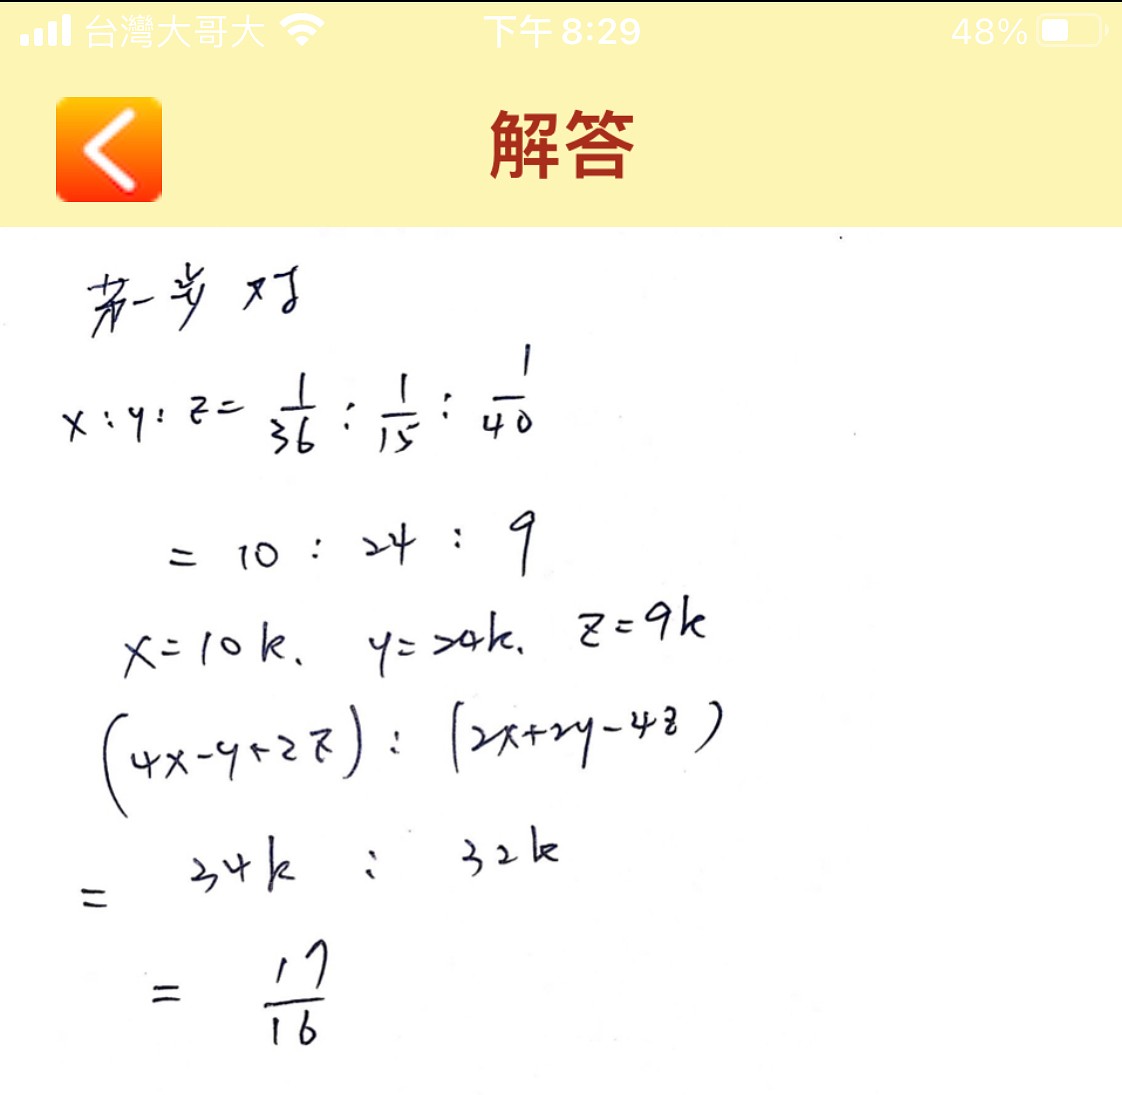 台灣大哥大 下午8:29 48%
解答
第一步 对
x : y : z = 1/36 : 1/15 : 1/40
= 10 : 24 : 9
x=10k. y=24k. z=9k
(4x-y+2z) : (2x+2y-4z)
= 34k : 32k
= 17/16